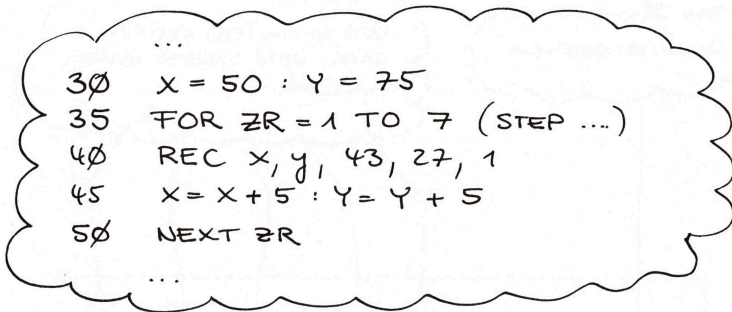 ...
3Ø X = 50 : Y = 75
35 FOR ZR = 1 TO 7 (STEP ....)
4Ø REC X, y, 43, 27, 1
45 X = X + 5 : Y = Y + 5
5Ø NEXT ZR
...